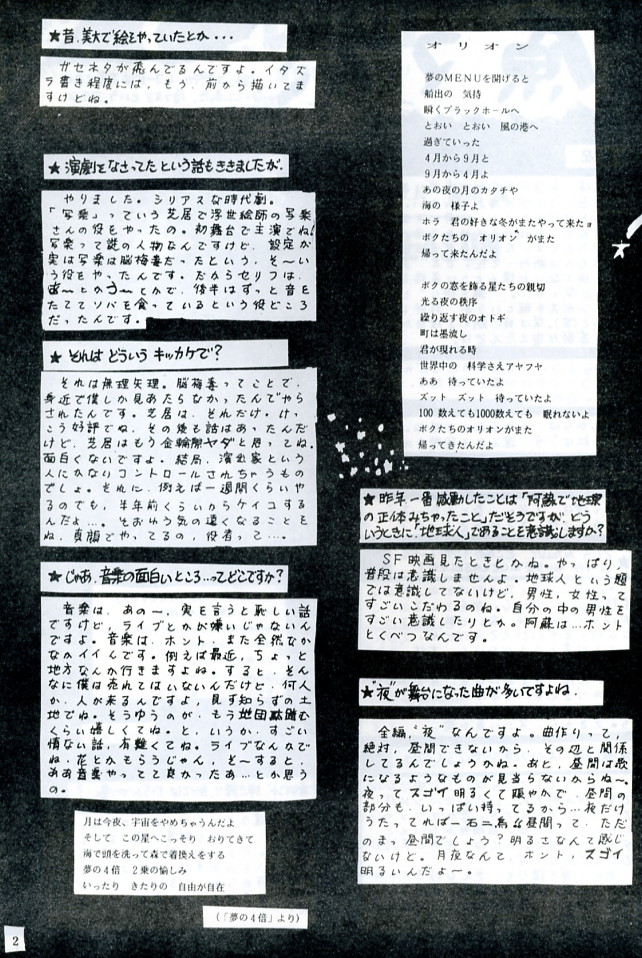 ★昔、美大で絵をやっていたとか・・・
ガセネタが飛んでるんですよ。イタズ
ラ書き程度には、もう、前から描いてま
すけどね。
★演劇をなさってたという話もききましたが。
やりました。シリアスな時代劇。
「写楽」っていう芝居で浮世絵師の写楽
さんの役をやったの。初舞台で主演でね!
写楽って謎の人物なんですけど、設定が
実は写楽は脳梅毒だったという、そ〜い
う役をやったんです。だからセリフは、
とかう〜とかで、後半はずっと音を
たててソバを食っているという役どころ
だったんです。
★それは どういう キッカケで?
それは無理矢理。脳梅毒ってことで、
身近で僕しか見あたらなかったんでやら
されたんです。芝居は、それだけ・けっ
こう好評でね、その後も話はあったんだ
けど、芝居はもう金輪際ヤダと思ってね。
面白くないですよ。結局、演出家という
人にかないコントロールされちゃうもの
でしょ。それに、例えば一週間くらいや
るのでも、半年前くらいからケイコする
んだよ…。そおゆう気の遠くなることを
ね、真顔でやってるの、役者って…。
★じゃあ、音楽の面白いところ…ってどこですか?
音楽は、あの〜、実を言うと恥しい話
ですけど、ライブとかが嫌いじゃないん
ですよ。音楽は、ホント、また全然なか
なかイイんです。例えば最近、ちょっと
地方なんか行きますよね。すると、そん
なに僕は売れてはいないんだけど、何人
か、人が来るんですよ、見ず知らずの土
地でね。そうゆうのが、もう地団駄踏む
くらい嬉しくてね。と、いうか、すごい
情ない話、有難くてね。ライブなんかで
ね、花とかもらうじゃん、そ〜すると、
ああ音楽やってて良かったあ…とか思う
の。
月は今夜、宇宙をやめちゃうんだよ
そして この星へこっそり おりてきて
海で頭を洗って森で着換えをする
夢の4倍 2乗の愉しみ
いったり きたりの 自由が自在
(「夢の4倍」より)
2
オリオン
夢のMENUを開げると
船出の 気持
瞬くブラックホールへ
とおい とおい 風の港へ
過ぎていった
4月から9月と
9月から4月よ
あの夜の月のカタチや
海の 様子よ
ホラ 君の好きな冬がまたやって来たョ
ボクたちの オリオン がまた
帰って来たんだよ
ボクの窓を飾る星たちの親切
光る夜の秩序
繰り返す夜のオトギ
町は墨流し
君が現れる時
世界中の 科学さえアヤフヤ
ああ 待っていたよ
ズット ズット 待っていたよ
100 数えても1000数えても 眠れないよ
ボクたちのオリオンがまた
帰ってきたんだよ
★昨年一番感動したことは「阿蘇で地球
の正体みちゃったこと」だそうですが、どう
いうときに「地球人」であることを意識しますか?
SF映画見たときとかね。やっぱり、
普段は意識しませんよ。地球人という題
では意識してないけど、男性、女性って
すごいこだわるのね。自分の中の男性を
すごい意識したりとか。阿蘇は…ホント
とくべつなんです。
★“夜”が舞台になった曲が多いですよね。
全編、“夜”なんですよ。曲作りって、
絶対、昼間できないから、その辺と関係
してるんでしょうかね。あと、昼間は歌
になるようなものが見当らないからね〜。
夜ってスゴイ明るくて賑やかで、昼間の
部分も、いっぱい持ってるから…夜だけ
うたってれば一石二鳥!!昼間って、ただ
のまっ昼間でしょう?明るさなんて感じ
ないけど。月夜なんて、ホント、スゴイ
明るいんだよ〜。